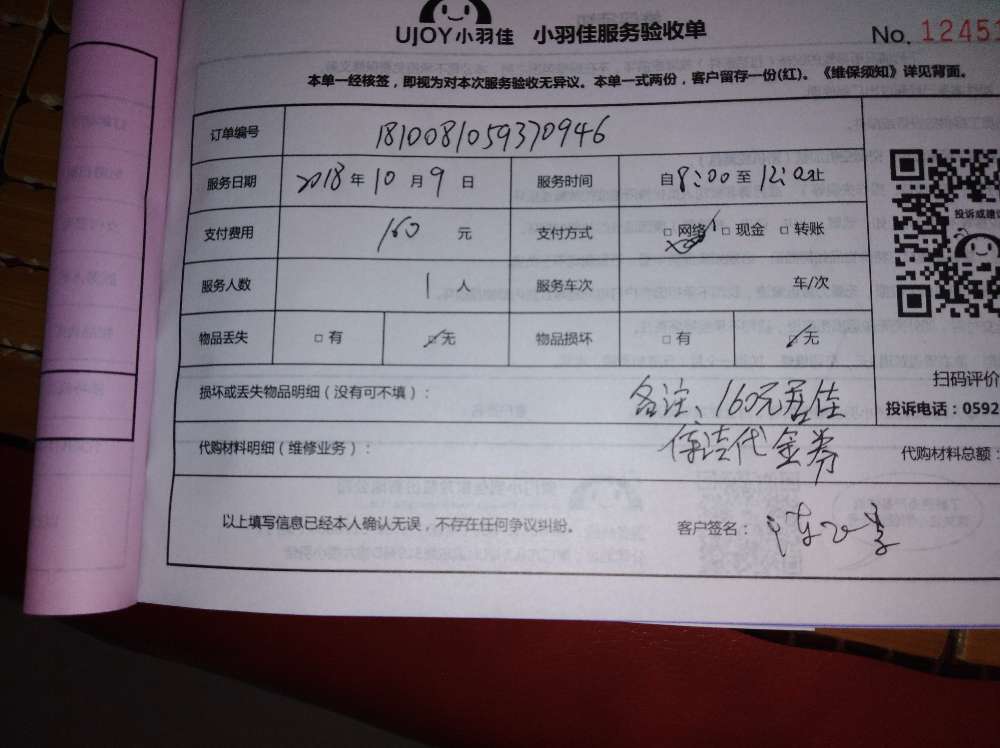 UJOY小羽佳 小羽佳服务验收单 No. 12451
本单一经核签，即视为对本次服务验收无异议。本单一式两份，客户留存一份(红)。《维保须知》详见背面。
订单编号 181008105937094６
服务日期 2018 年 10 月 9 日 服务时间 自 8:00 至 12:00 止
支付费用 160 元 支付方式 □ 网络 □ 现金 □ 转账
服务人数 1 人 服务车次 车/次
物品丢失 □ 有 ☑ 无 物品损坏 □ 有 ☑ 无
投诉或建议
扫码评价
投诉电话：0592
损坏或丢失物品明细（没有可不填）： 备注、160元居佳
保洁代金券
代购材料明细（维修业务）： 代购材料总额：
以上填写信息已经本人确认无误，不存在任何争议纠纷。 客户签名：